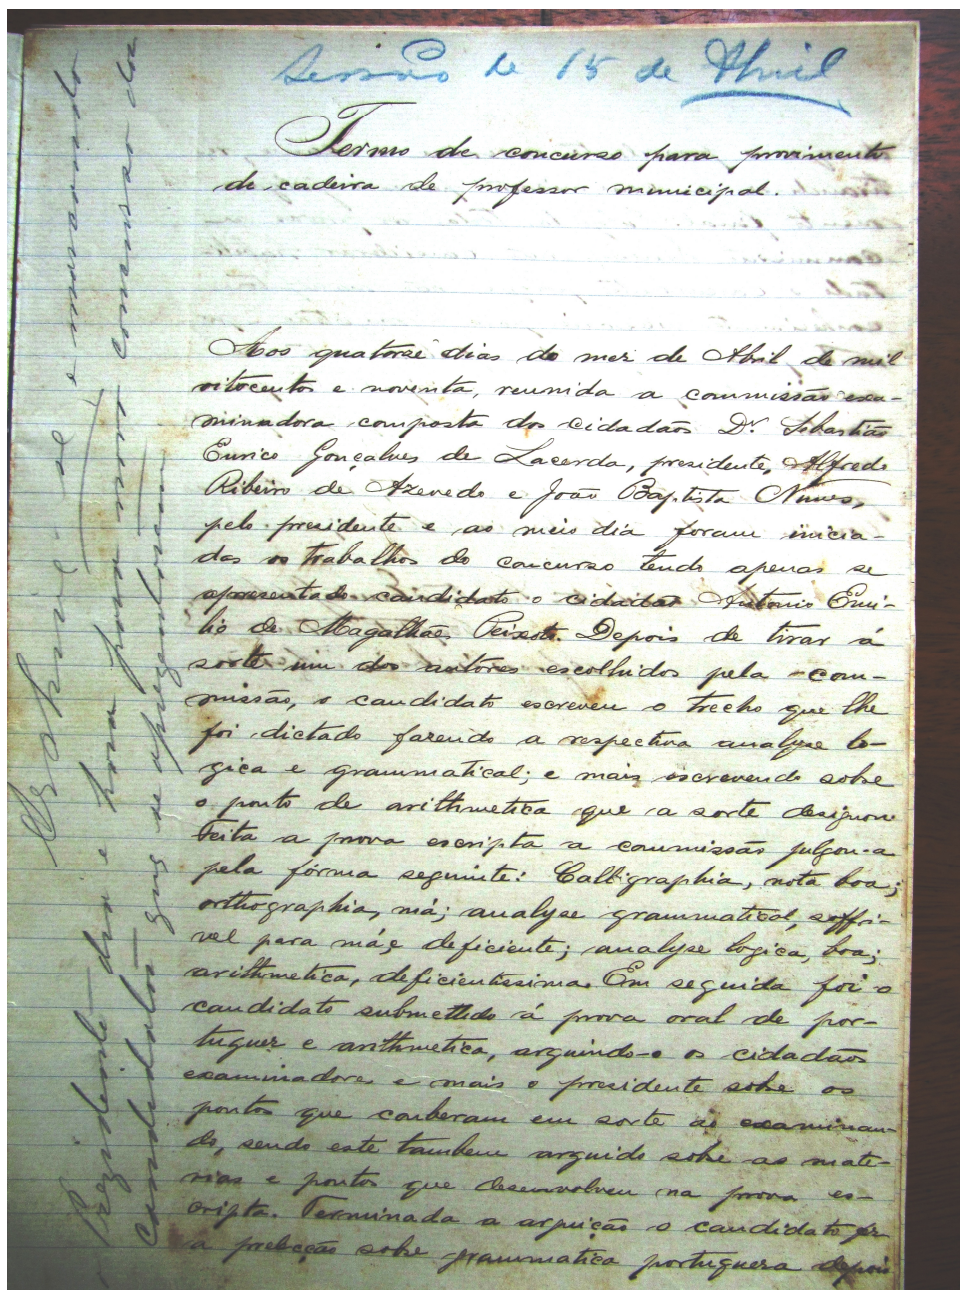 Sessão de 15 de Abril
Termo de concurso para provimento
de cadeira de professor municipal.
Aos quatorze dias do mez de Abril de mil
oitocentos e noventa, reunida a commissão exa-
minadora composta dos cidadãos Dr. Sebastião
Eurico Gonçalves de Lacerda, presidente, Alfredo
Ribeiro de Azevedo e João Baptista Nunes,
pelo presidente e ao meio dia foram inicia-
dos os trabalhos do concurso tendo apenas se
apresentado candidato o cidadão Antonio Emi-
lio de Magalhães Peixoto. Depois de tirar á
sorte um dos autores escolhidos pela com-
missão, o candidato escreveu o trecho que lhe
foi dictado fazendo a respectiva analyse lo-
gica e grammatical; e mais escrevendo sobre
o ponto de arithmetica que a sorte designou
Feita a prova escripta a commissão julgou-a
pela fórma seguinte: Calligraphia, nota boa;
orthographia, má; analyse grammatical, soffri-
vel para má e deficiente; analyse logica, boa;
arithmetica, deficientissima. Em seguida foi o
candidato submettido á prova oral de por-
tuguez e arithmetica, arguindo-o os cidadãos
examinadores e mais o presidente sobre os
pontos que couberam em sorte ao examinan-
do, sendo este tambem arguido sobre as mate-
rias e pontos que desenvolveu na prova es-
cripta. Terminada a arguição o candidato fez
a prelecção sobre grammatica portugueza depois
e marcando
Prezidente dia e hora para novo concurso dos
candidatos que se aprezentarem